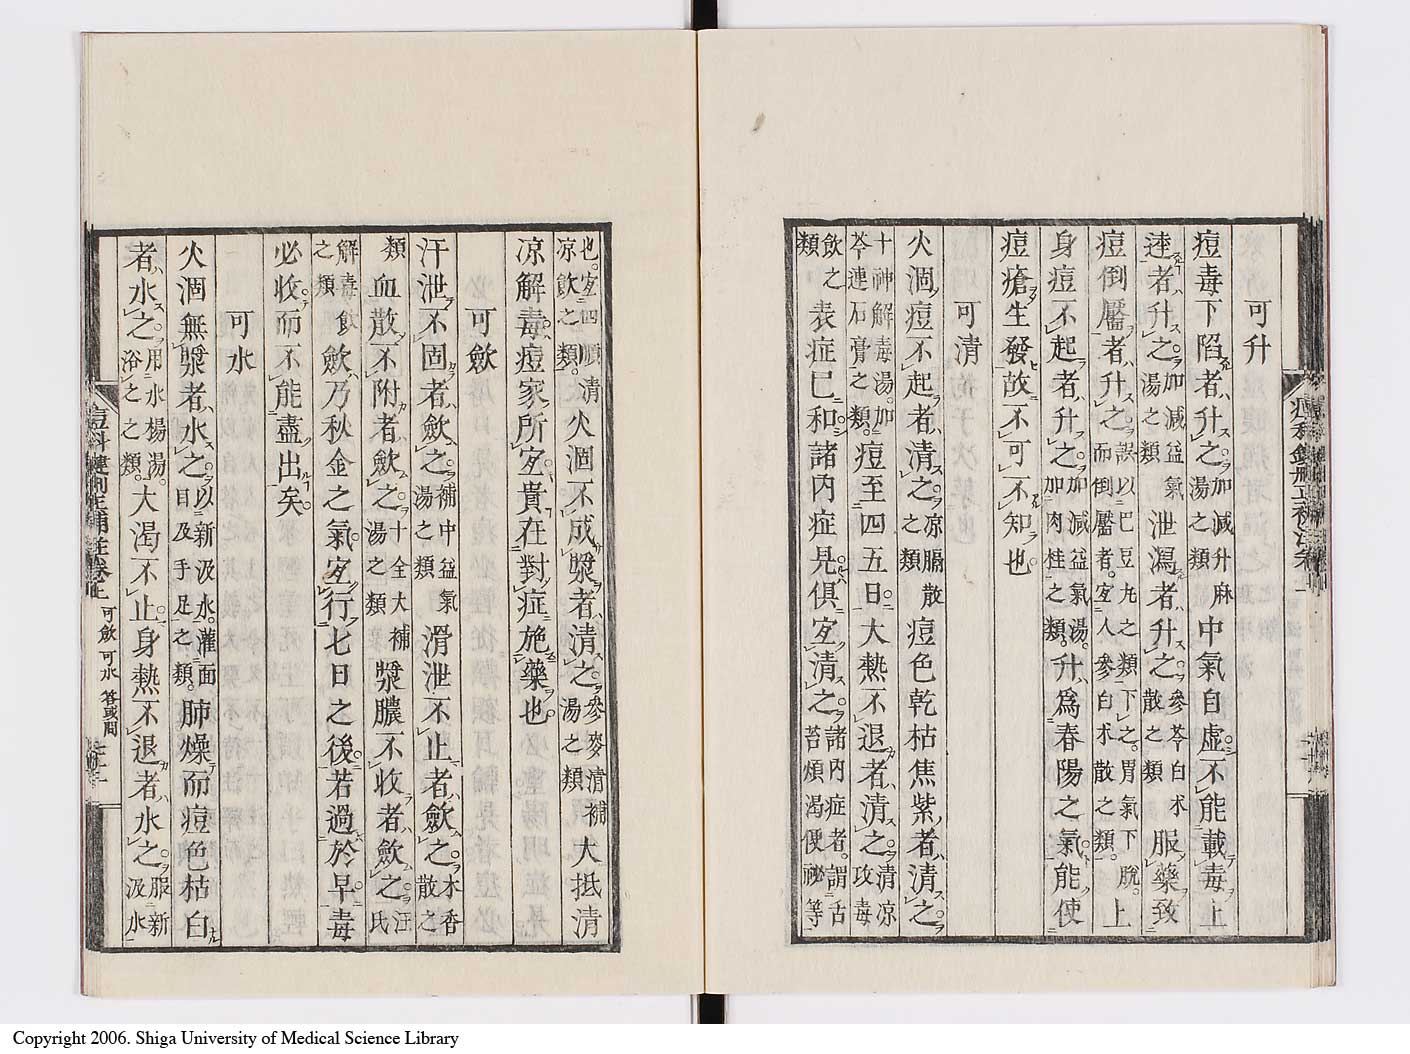 可升
痘毒下陷者升之加減升麻湯之類中氣自虛不能載毒上
達者升之加減益氣湯之類泄瀉者升之參苓白朮散之類服藥致
痘倒靨者升之誤以巴豆丸之類下之胃氣下脫而倒靨者宜人參白朮散之類上
身痘不起者升之加減益氣湯加肉桂之類升為春陽之氣能使
痘瘡生發故不可不知也
可清
火涸痘不起者清之涼膈散之類痘色乾枯焦紫者清之
十神解毒湯加芩連石膏之類痘至四五日大熱不退者清之清凉攻毒
飲之類表症已和諸內症見俱宜清之諸內症者謂舌苔煩渴便祕等
也宜四順清凉飲之類火涸不成漿者清之參麥清補湯之類大抵清
凉解毒痘家所宜貴在對症施藥也
可斂
汗泄不固者斂之補中益氣湯之類滑泄不止者斂之木香散之
類血散不附者斂之十全大補湯之類漿膿不收者斂之汪氏
解毒飲之類斂乃秋金之氣宜行七日之後若過於早毒
必收而不能盡出矣
可水
火涸無漿者水之以新汲水灌面目及手足之類肺燥而痘色枯白
者水之用水楊湯浴之之類大渴不止身熱不退者水之服新汲水
痘科鍵刪正補註卷上 可斂 可水 答或問
Copyright 2006. Shiga University of Medical Science Library